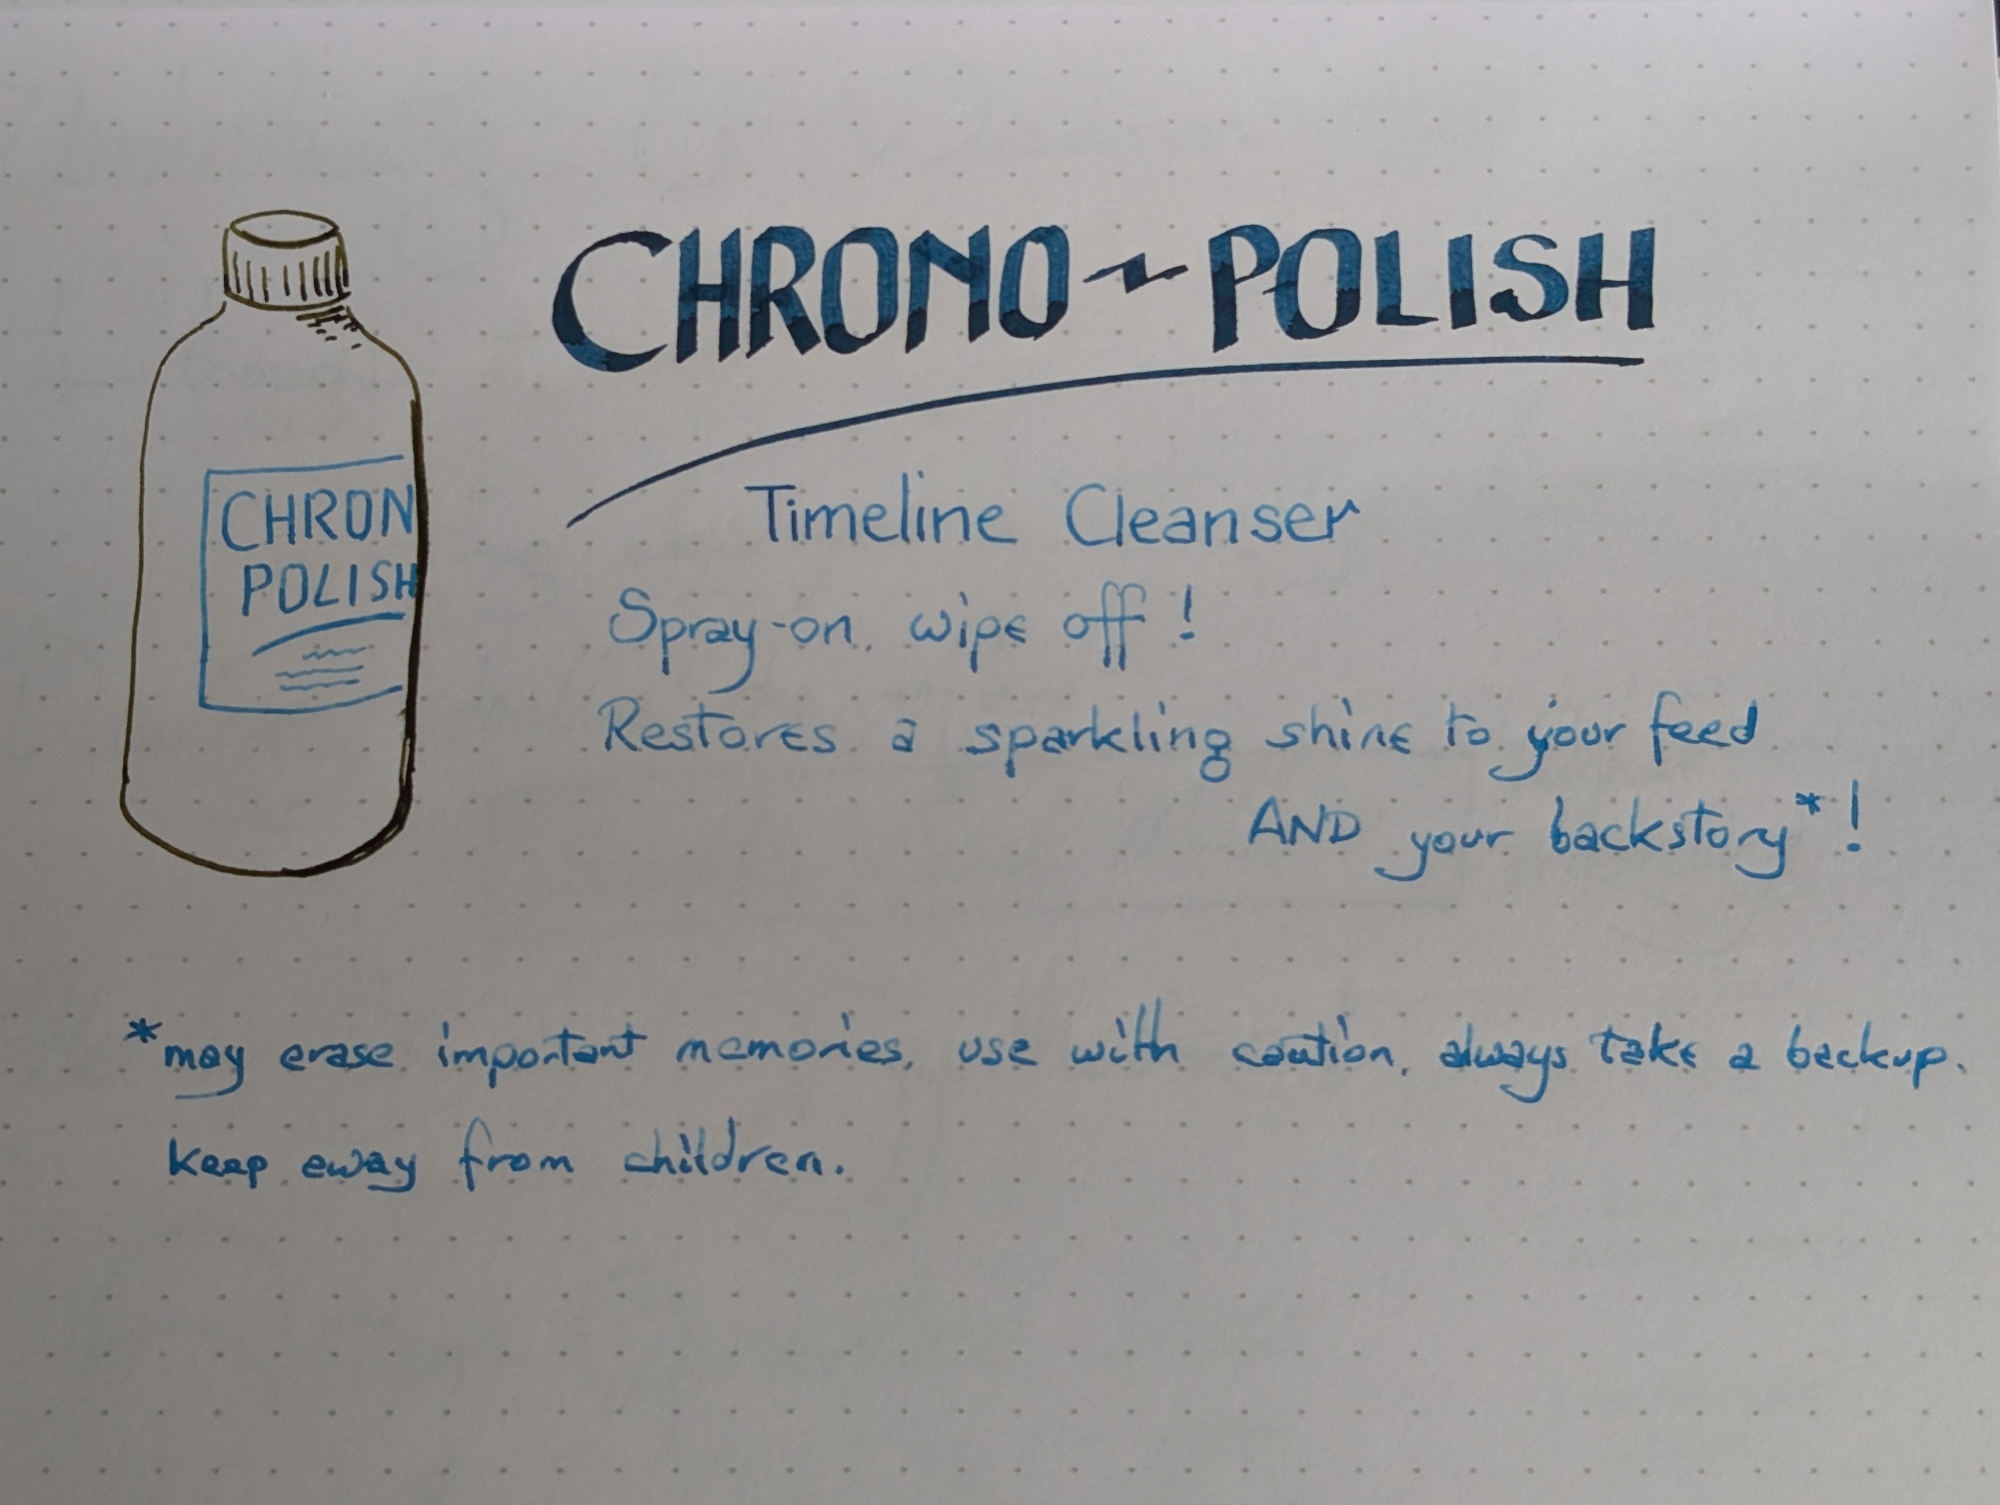 CHRONO~POLISH
CHRON
POLISH
Timeline Cleanser
Spray-on, wipe off!
Restores a sparkling shine to your feed
AND your backstory*!
*may erase important memories, use with caution, always take a backup.
keep eway from children.